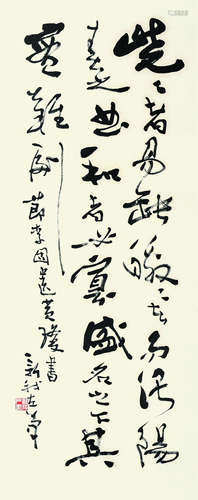 嶢々者易缺皦々者易污陽
春之曲和者必寡盛名之下其
實難副
節李固遺黃瓊書
新我左筆